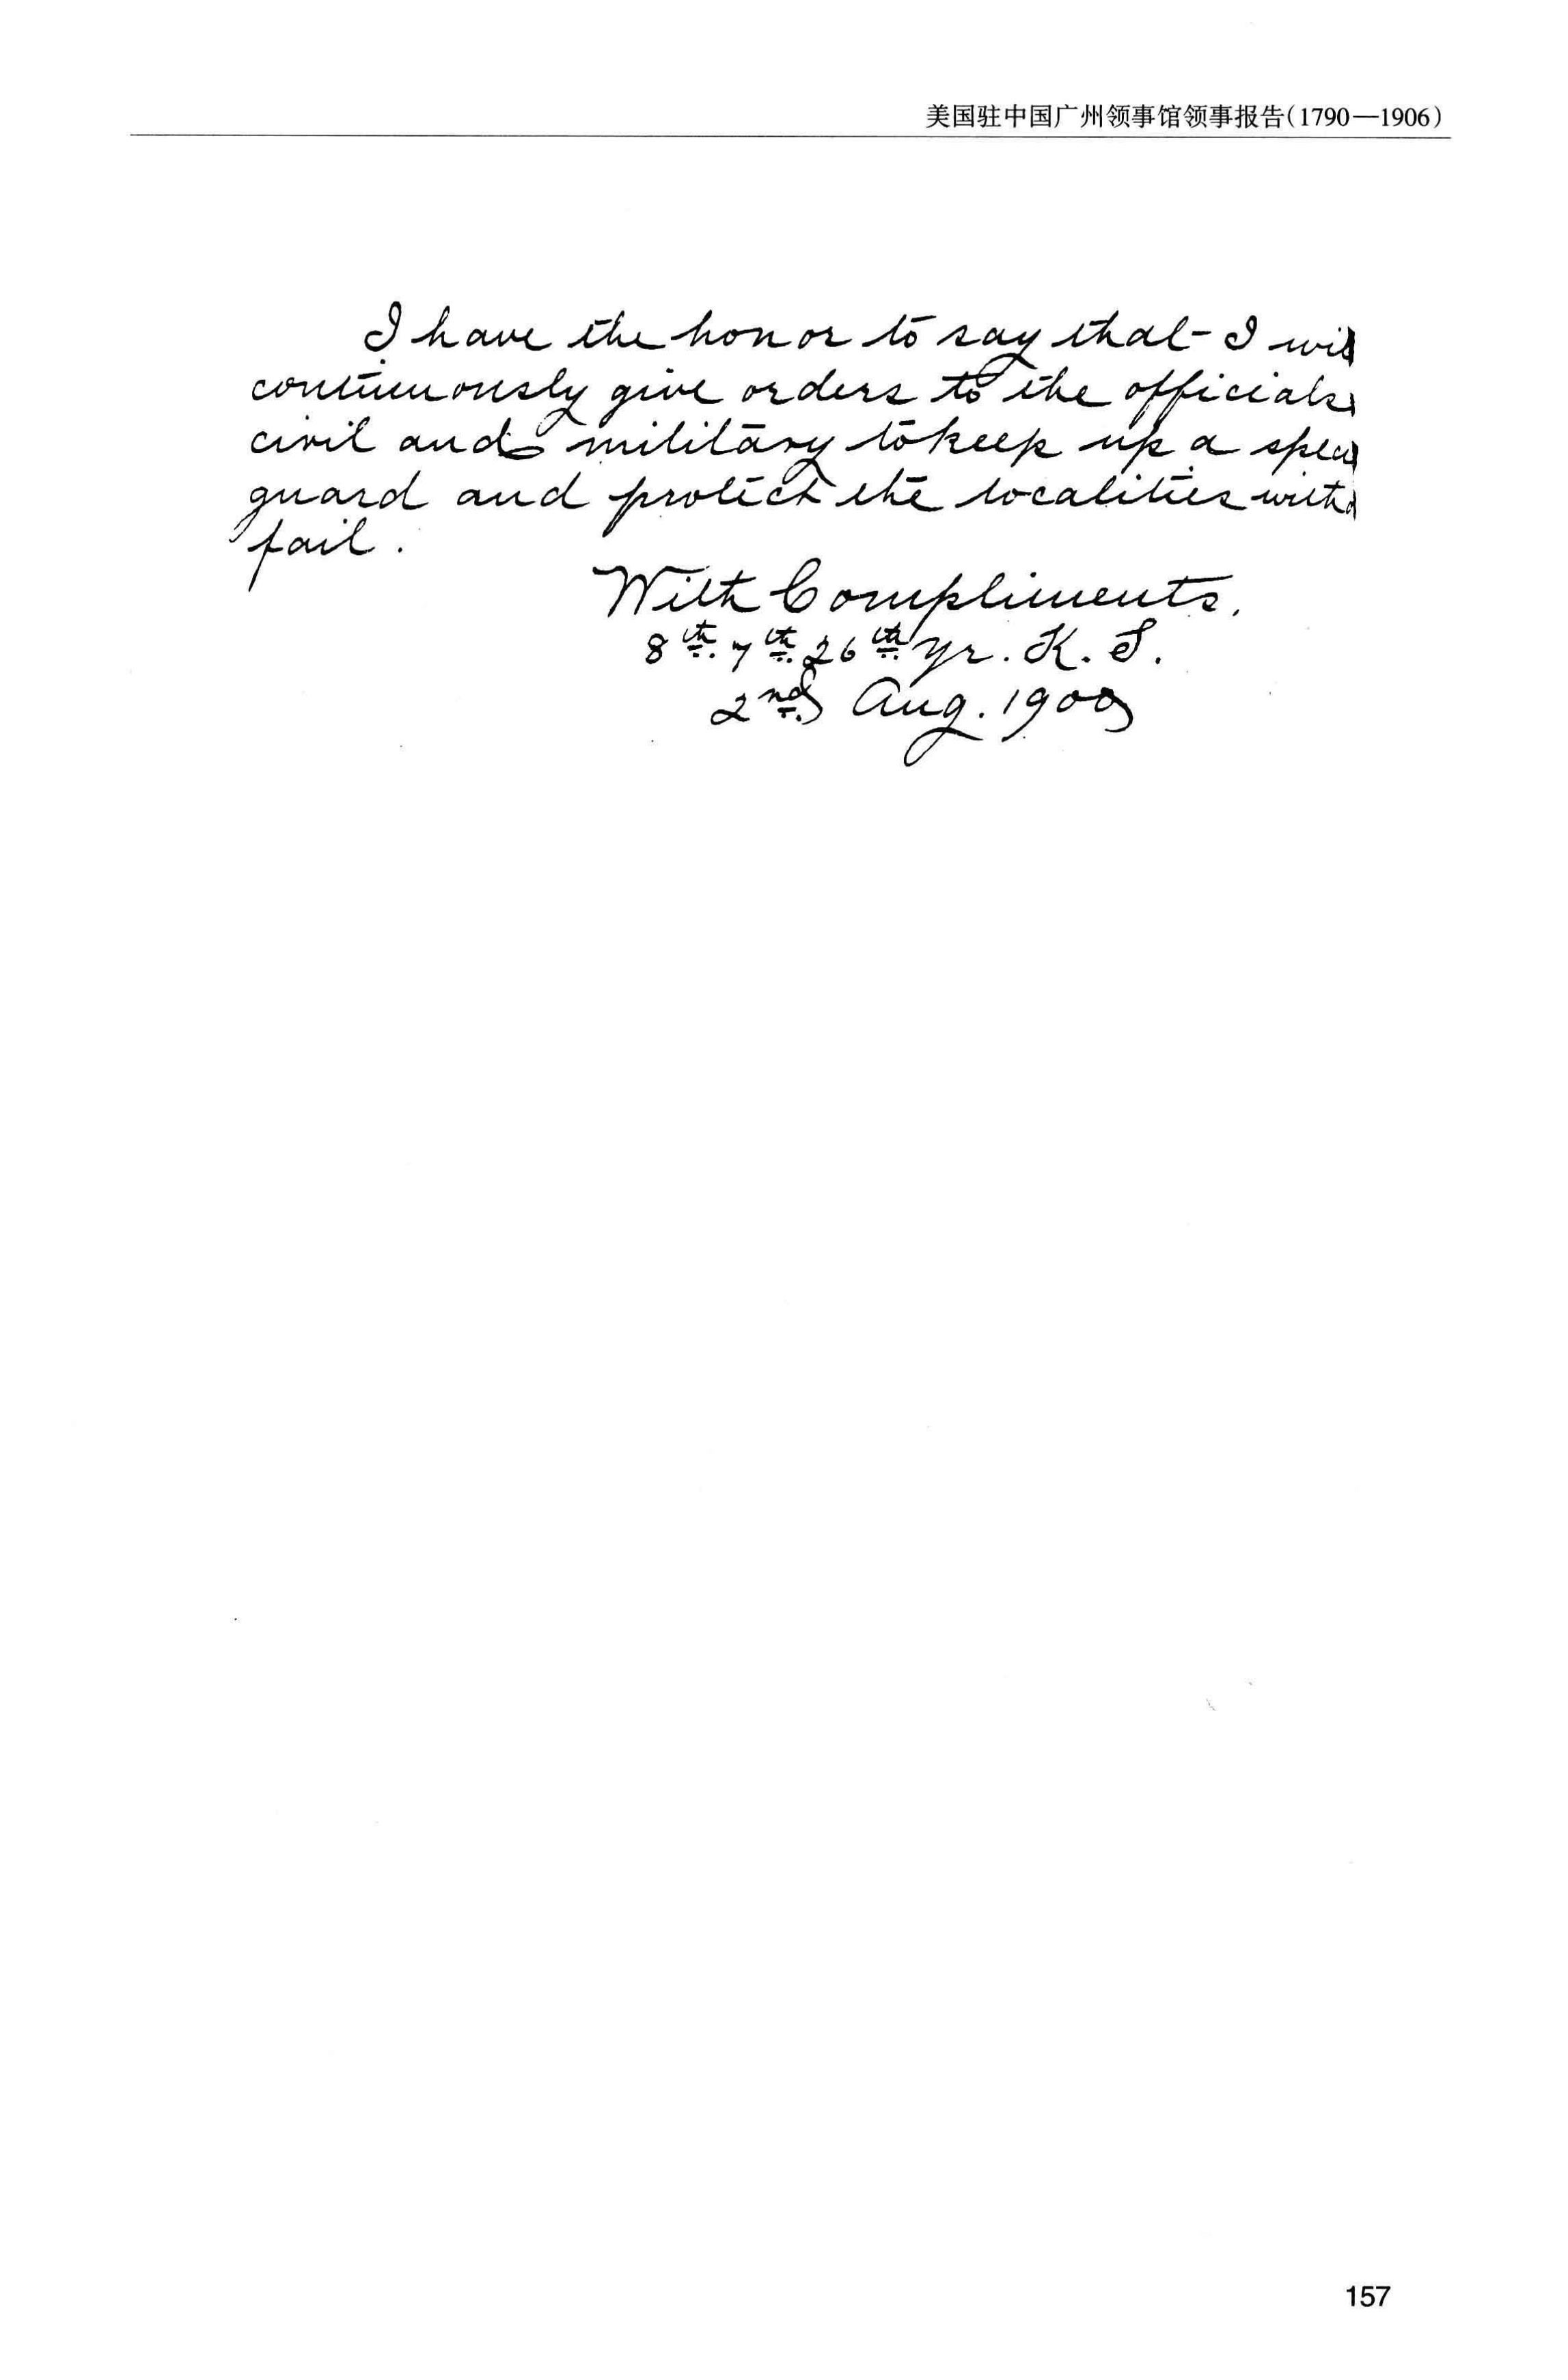 美国驻中国广州领事馆领事报告(1790—1906)
I have the honor to say that I will
continuously give orders to the officials
civil and military to keep up a
guard and protect the localities
fail.
With Compliments.
8th. 7th. 26th yr. K. S.
2nd Aug. 1900
157